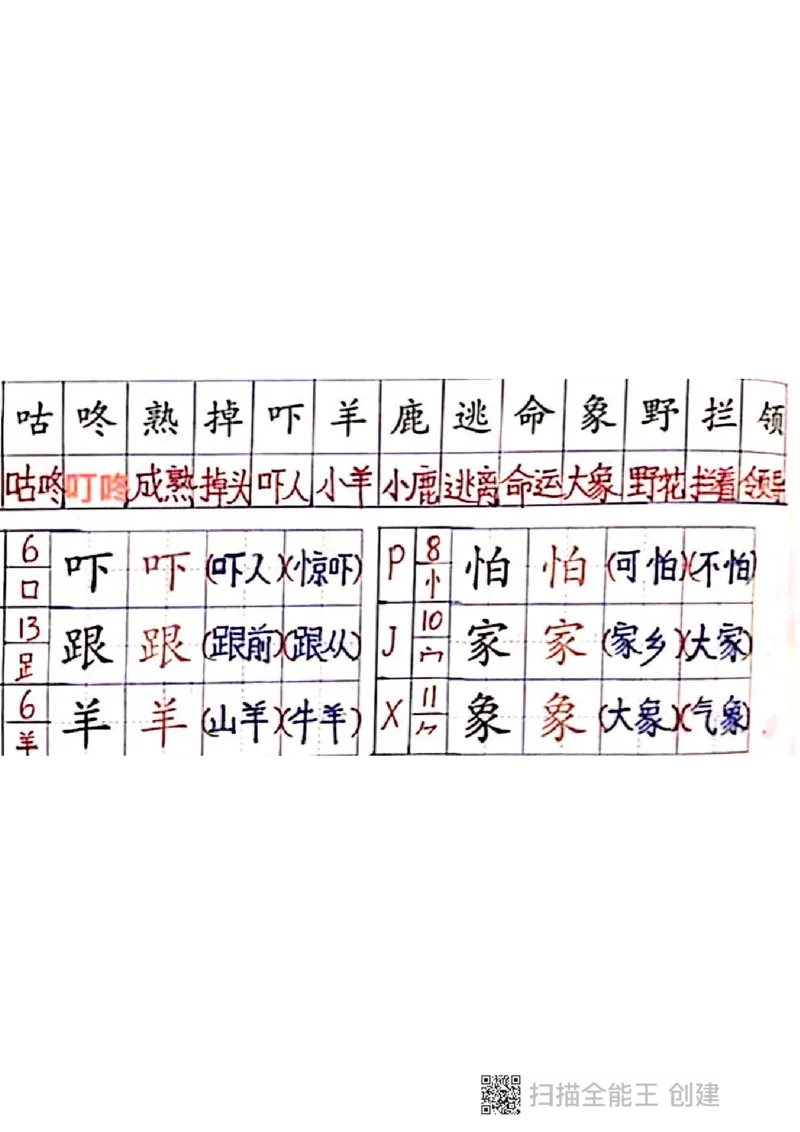 咕 咚 熟 掉 吓 羊 鹿 逃 命 象 野 拦 领
咕咚 叮咚 成熟 掉头 吓人 小羊 小鹿 逃离 命运 大象 野花 拦着 领导
6 口 吓 吓 (吓人)(惊吓) P 8 忄 怕 怕 (可怕)(不怕)
13 足 跟 跟 (跟前)(跟从) J 10 宀 家 家 (家乡)(大家)
6 羊 羊 羊 (山羊)(牛羊) X 11 象 象 (大象)(气象)
扫描全能王 创建